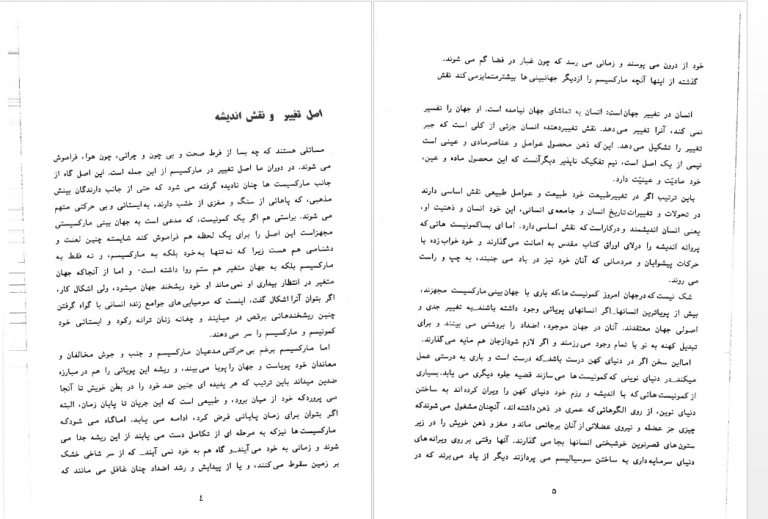 اصل تغییر و نقش اندیشه
مسائلی هستند که چه بسا از فرط صحت و بی چون و چرائی، چون هوا، فراموش
می شوند. در دوران ما اصل تغییر در مارکسیسم از این جمله است. این اصل گاه از
جانب مارکسیست ها چنان نادیده گرفته می شود که حتی از جانب دارندگان بینش
مذهبی، که پاهائی از سنگ و مغزی از خشب دارند، به ایستائی و بی حرکتی متهم
می شوند. براستی هم اگر یک کمونیست، که مدعی است به جهان بینی مارکسیستی
مجهز است این اصل را برای یک لحظه هم فراموش کند شایسته چنین لعنت و
دشنامی هم هست زیرا که نه تنها به خود بلکه به مارکسیسم، و نه فقط به
مارکسیسم بلکه به جهان متغیر هم ستم روا داشته است. و اما از آنجا که جهان
متغیر در انتظار بیداری او نمی ماند او خود ریشخند جهان میشود، ولی اشکال کار،
اگر بتوان آنرا اشکال گفت، اینست که مومیایی های جوامع زنده انسانی با گواه گرفتن
چنین ریشخندهائی برقص در میایند و چغانه زنان ترانه رکود و ایستائی خود
کمونیسم و مارکسیسم را سر می دهند.
اما مارکسیسم برغم بی حرکتی مدعیان مارکسیسم و جنب و جوش مخالفان و
معاندان خود پویاست و جهان را پویا می بیند، و ریشه این پویائی را هم در مبارزه
ضدین میداند باین ترتیب که هر پدیده ای جنین ضد خود را در بطن خویش تا آنجا
می پرورد که خود از میان برود، و طبیعی است که این جریان تا پایان زمان، البته
اگر بتوان برای زمان پایانی فرض کرد، ادامه می یابد. اما گاه می شود که
مارکسیست ها نیز که به مرحله ای از تکامل دست می یابند از این ریشه جدا می
شوند و زمانی به خود می آیند_و گاه هم به خود نمی آیند_ که از سر شاخی خشک
بر زمین سقوط می کنند، و یا از پیدایش و رشد اضداد چنان غافل می مانند که
٤
خود از درون می پوسند و زمانی می رسد که چون غبار در فضا گم می شوند.
گذشته از اینها آنچه مارکسیسم را از دیگر جهانبینی ها بیشتر متمایز می کند نقش
انسان در تغییر جهان است: انسان به تماشای جهان نیامده است. او جهان را تفسیر
نمی کند، آنرا تغییر می دهد. نقش تغییردهنده انسان جزئی از کلی است که جبر
تغییر را تشکیل می دهد. این که ذهن محصول عوامل و عناصر مادی و عینی است
نیمی از یک اصل است، نیم تفکیک ناپذیر دیگر آنست که این محصول ماده و عین،
خود مادیّت و عینیّت دارد.
باین ترتیب اگر در تغییر طبیعت خود طبیعت و عوامل طبیعی نقش اساسی دارند
در تحولات و تغییرات تاریخ انسان و جامعه ی انسانی، این خود انسان و ذهنیت او،
یعنی انسان اندیشمند و در کار است که نقش اساسی دارد. اما ای بسا کمونیست هائی که
پروانه اندیشه را در لای اوراق کتاب مقدس به امانت می گذارند و خود خواب زده با
حرکات پیشوایان و مردمانی که آنان خود نیز در باد می جنبند، به چپ و راست
می روند.
شک نیست که در جهان امروز کمونیست ها، که باری با جهان بینی مارکسیست مجهزند،
بیش از پویاترین انسانها_اگر انسانهای پویائی وجود داشته باشند_به تغییر جدی و
اصولی جهان معتقدند. آنان در جهان موجود، اضداد را بروشنی می بینند و برای
تبدیل کهنه به نو با تمام وجود می رزمند و اگر لازم شود از جان هم مایه می گذارند.
اما این سخن اگر در دنیای کهن درست باشد_که درست است و باری به درستی عمل
میکند_در دنیای نوینی که کمونیست ها می سازند قضیه جلوه دیگری می یابد. بسیاری
از کمونیست هائی که با اندیشه و رزم خود دنیای کهن را ویران کرده اند به ساختن
دنیای نوین، از روی الگوهائی که عمری در ذهن داشته اند، آنچنان مشغول می شوند که
چیزی جز عضله و نیروی عضلانی از آنان برجا نمی ماند و مغز و ذهن خویش را در زیر
ستون های قصر نوین خوشبختی انسانها بجا می گذارند. آنها وقتی بر روی ویرانه های
دنیای سرمایه داری به ساختن سوسیالیسم می پردازند دیگر از یاد می برند که در
۵